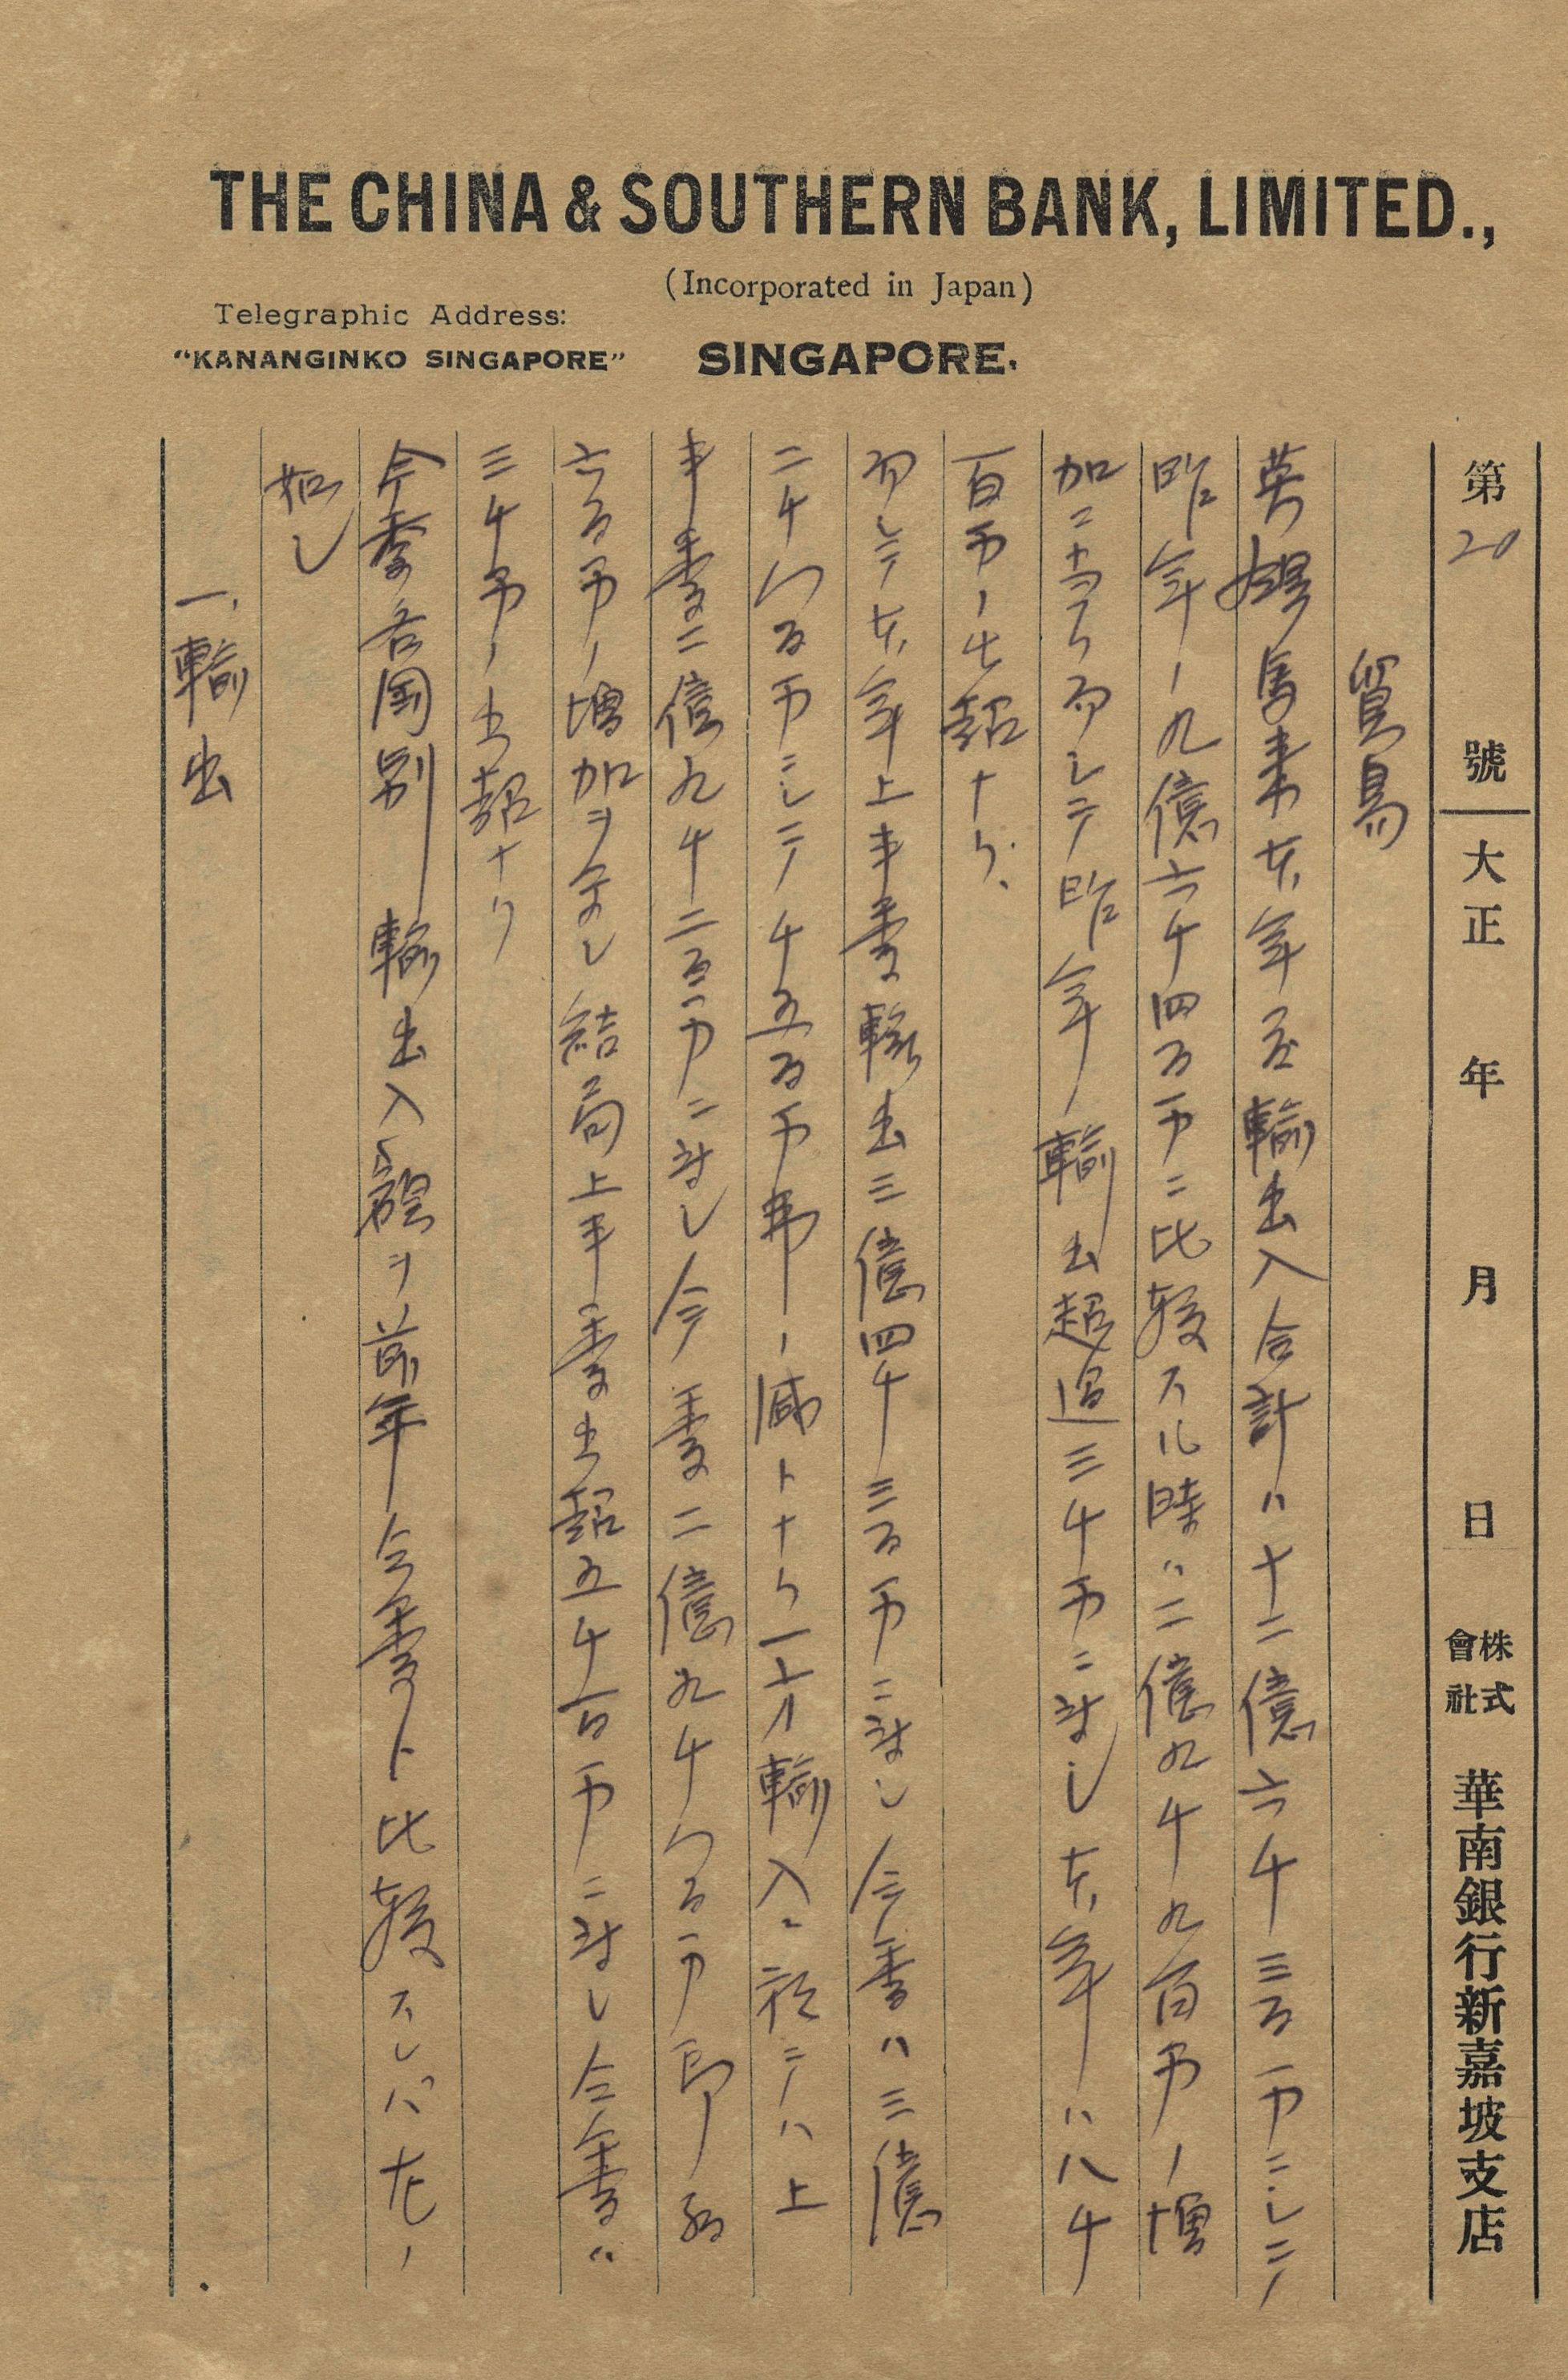 THE CHINA & SOUTHERN BANK, LIMITED.,
(Incorporated in Japan)
Telegraphic Address:
"KANANGINKO SINGAPORE"
SINGAPORE.
第20號 大正 年 月 日 株式會社 華南銀行新嘉坡支店
貿易
英領馬来本年度輸出入合計ハ十二億六千三百万ニシテ
昨年ノ九億六千四百万ニ比較スル時ハ二億九千九百万ノ増
加ニ当ル而シテ昨年ノ輸出超過三千万ニ対シ本年ハ八千
百万ノ出超ナリ
而シテ本年上半季輸出三億四千三百万ニ対シ今季ハ三億
二千八百万ニシテ千五百万弗ノ減トナル一方輸入ニ於テハ上
半季二億九千二百万ニ対シ今季二億九千八百万即
六百万ノ増加ヲ示シ結局上半季出超五千百万ニ対シ今季ハ
三千万ノ出超ナリ
今季各国別輸出入額ヲ前年今季ト比較スレバ左ノ
如し
一、輸出